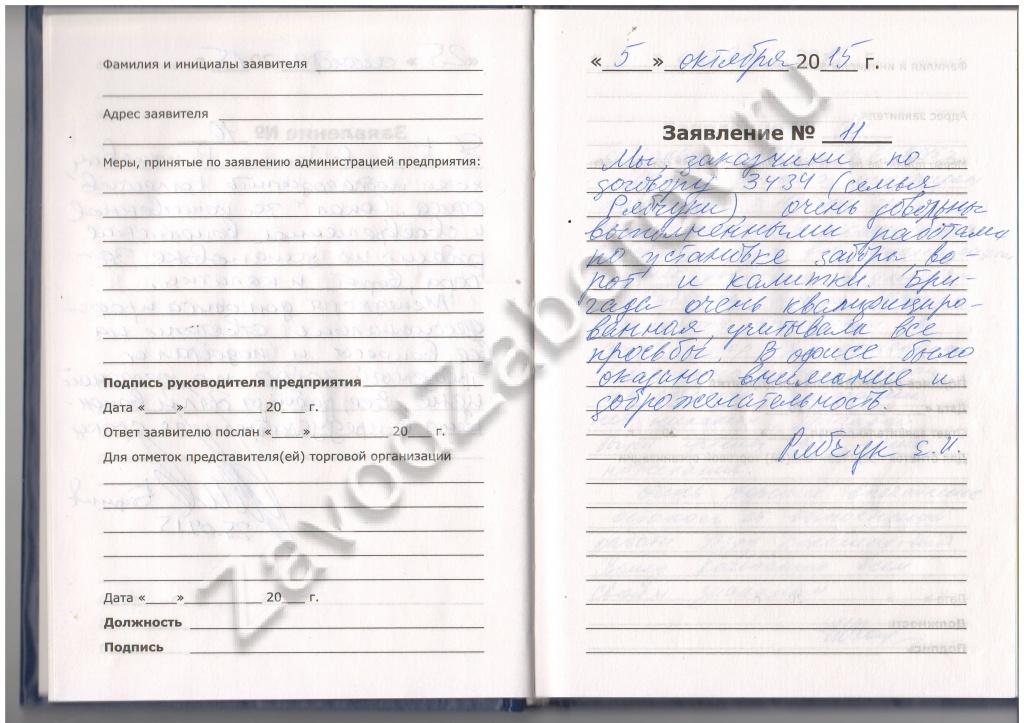 Фамилия и инициалы заявителя
Адрес заявителя
Меры, принятые по заявлению администрацией предприятия:
Подпись руководителя предприятия
Дата «____»____________ 20___ г.
Ответ заявителю послан «____»____________ 20___ г.
Для отметок представителя(ей) торговой организации
Дата «____»____________ 20___ г.
Должность
Подпись
« 5 » октября 2015 г.
Заявление № 11
Мы, заказчики по
договору 3434 (семья
Рябчуки), очень довольны
выполненными работами
по установке забора, во-
рот и калитки. Бри-
гада очень квалицфициро-
ванная, учитывала все
просьбы. В офисе было
оказано внимание и
доброженательность.
Рябчук Е.И.
zavodzaborov.ru